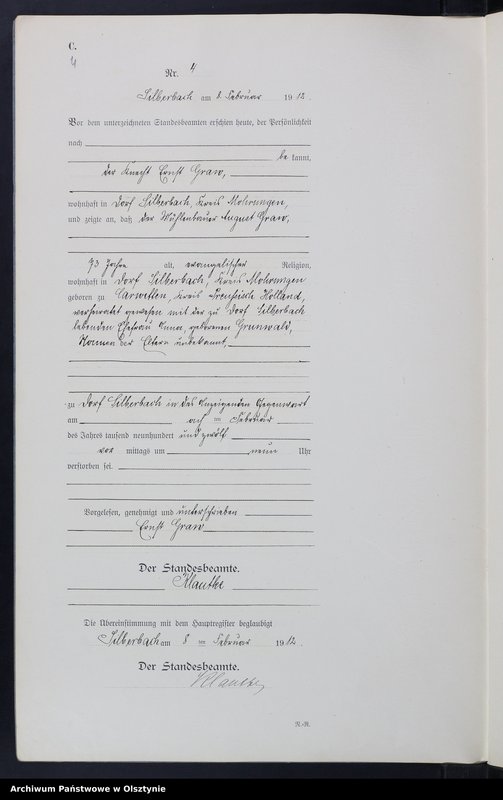 C.
4
Nr. 4
Silberbach am 8. Februar 1912.
Vor dem unterzeichneten Standesbeamten erschien heute, der Persönlichkeit
nach
bekannt,
der Knecht Ernst Graw,
wohnhaft in Dorf Silberbach, Kreis Mohrungen,
und zeigte an, daß der Mühlenbauer August Graw,
73 Jahre alt, evangelischer Religion,
wohnhaft in Dorf Silberbach, Kreis Mohrungen
geboren zu Carwitten, Kreis Preußisch Holland,
verheiratet gewesen mit der zu Dorf Silberbach
lebenden Ehefrau Anna, geborenen Grunwald,
Namen der Eltern unbekannt,
zu Dorf Silberbach in des Anzeigenden Gegenwart
am acht ten Februar
des Jahres tausend neunhundert und zwölf
vor mittags um neun Uhr
verstorben sei.
Vorgelesen, genehmigt und unterschrieben
Ernst Graw
Der Standesbeamte.
Klautke
Die Übereinstimmung mit dem Hauptregister beglaubigt
Silberbach am 8 ten Februar 1912.
Der Standesbeamte.
Klautke
R.-R.
Archiwum Państwowe w Olsztynie